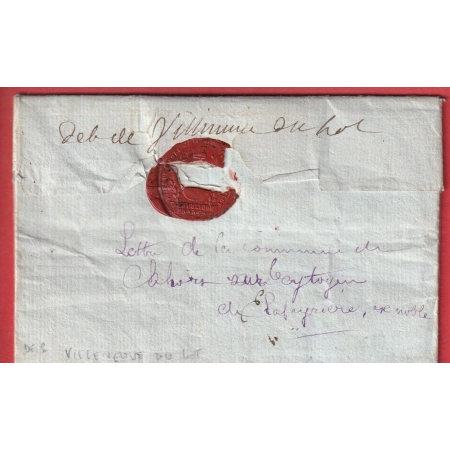 Deb de Villeneuve du Lot
Lettre de la commune de
Cahors sur Cytoyen
de Lafeyriere, ex noble
VILLENEUVE DU LOT